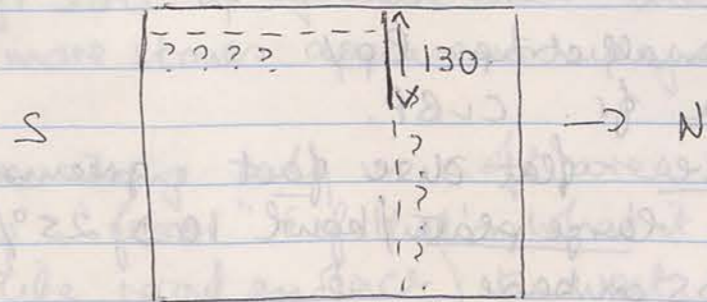 ? ? ? ?
130
S
→ N
?
?
?
?